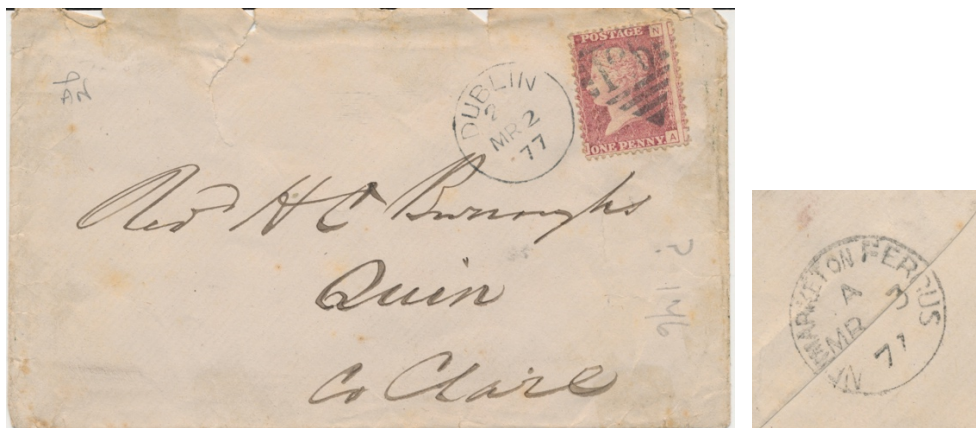 POSTAGE N
ONE PENNY A
DUBLIN
2
MR 2
77
Revd H C Burroughs
Quin
Co Clare
? 1M/6
NEWMARKET ON FERGUS
A
MR 3
77